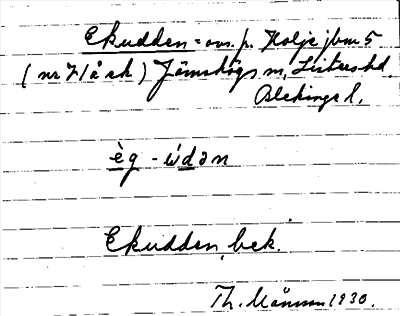 Ekudden = avs. p. Holje jbm 5
(nr 71 å ek) Jämshögs sn, Listers hd.
Blekinge l.
èg - ẃdən
Ekudden, bek.
Th. Månsson 1930.